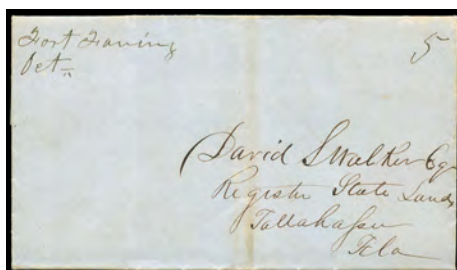 Fort Faning
Oct
5
David S Walker Esqr
Register State Lands
Tallahassee
Fla